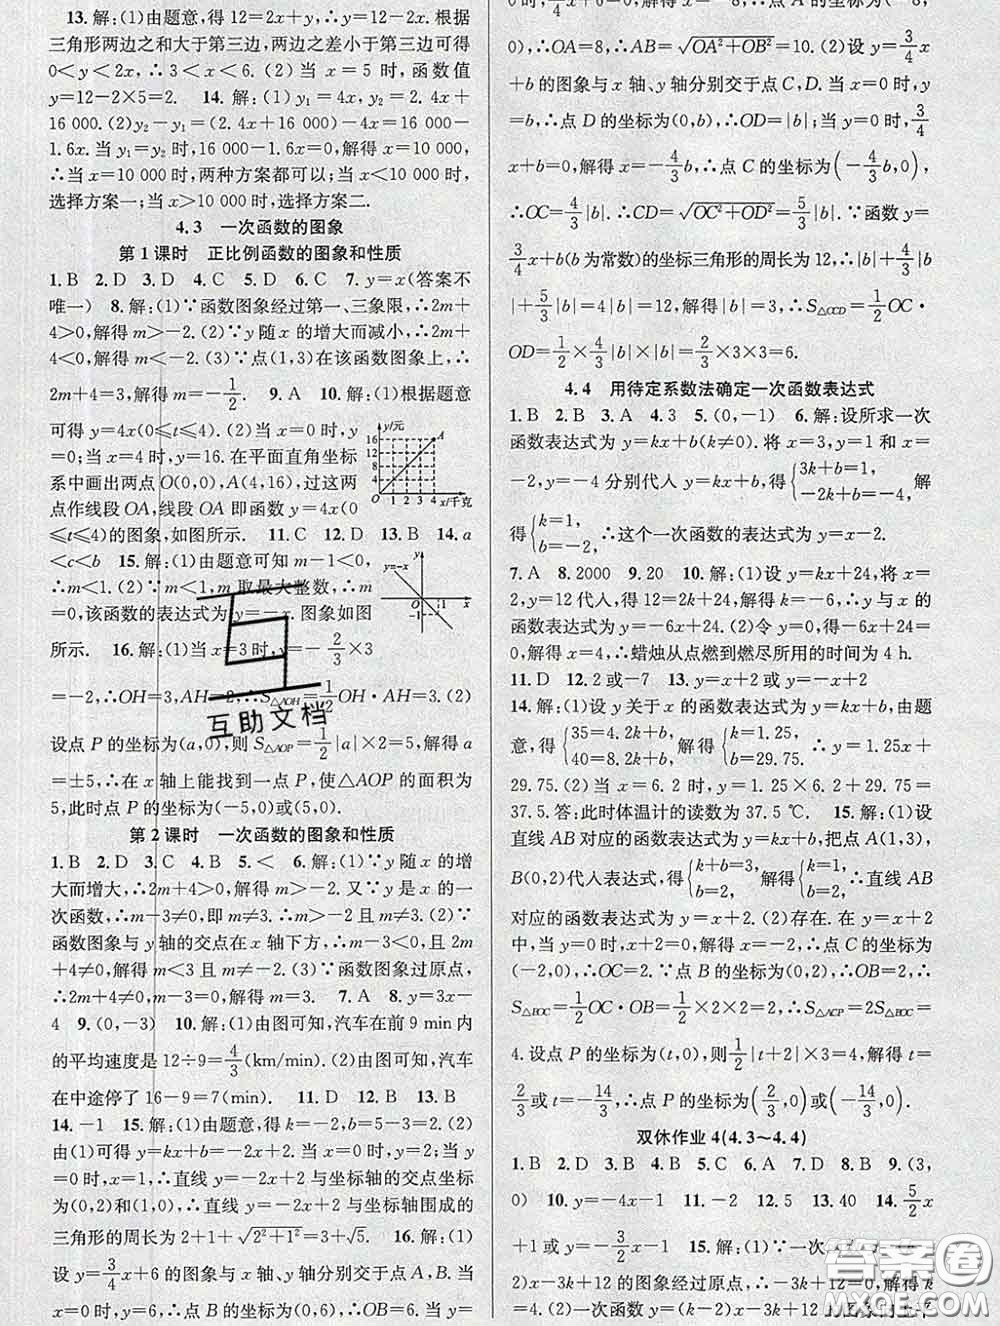 13. 解:(1)由题意,得 12=2x+y,∴y=12-2x. 根据
三角形两边之和大于第三边,两边之差小于第三边可得
0<y<2x,∴3<x<6. (2)当 x=5 时,函数值
y=12-2×5=2. 14. 解:(1)y₁=4x,y₂=2. 4x+
16 000. (2)y₂-y₁=(2. 4x+16 000)-4x=16 000-
1. 6x. 当 y₁=y₂ 时,16 000-1. 6x=0,解得 x=10 000,
∴当 x=10 000 时,两种方案都可以;当 x<10 000 时,
选择方案一;当 x>10 000 时,选择方案二.
4. 3 一次函数的图象
第 1 课时 正比例函数的图象和性质
1. B 2. D 3. D 4. C 5. D 6. C 7. y=x(答案不
唯一) 8. 解:(1)∵函数图象经过第一、三象限,∴2m+
4>0,解得 m>-2. (2)∵y 随 x 的增大而减小,∴2m+
4<0,解得 m<-2. (3)∵点(1,3)在该函数图象上,∴
2m+4=3,解得 m=-1/2. 9. A 10. 解:(1)根据题意
可得 y=4x(0≤x≤4). (2)当 x=0 时,y
=0;当 x=4 时,y=16. 在平面直角坐标
系中画出两点 O(0,0),A(4,16),过这两
点作线段 OA,线段 OA 即函数 y=4x(0
≤x≤4)的图象,如图所示. 11. C 12. D 13. B 14. a
<c<b 15. 解:(1)由题意可知 m-1<0,
∴m<1. (2)∵m<1,m 取最大整数,∴m
=0,该函数的表达式为 y=-x. 图象如图
所示. 16. 解:(1)当 x=3 时,y=-2/3×3
=-2,∴OH=3,AH=2,∴S△AOH=1/2OH·AH=3. (2)
设点 P 的坐标为(a,0),则 S△AOP=1/2|a|×2=5,解得 a
=±5,∴在 x 轴上能找到一点 P,使△AOP 的面积为
5,此时点 P 的坐标为(-5,0)或(5,0).
第 2 课时 一次函数的图象和性质
1. B 2. D 3. C 4. B 5. < 6. 解:(1)∵y 随 x 的增
大而增大,∴2m+4>0,解得 m>-2. 又∵y 是 x 的一
次函数,∴m-3≠0,即 m≠3. ∴m>-2 且 m≠3. (2)∵
函数图象与 y 轴的交点在 x 轴下方,∴m-3<0 且 2m
+4≠0,解得 m<3 且 m≠-2. (3)∵函数图象过原点,
∴2m+4≠0,m-3=0,解得 m=3. 7. A 8. y=3x-
4 9. (0,-3) 10. 解:(1)由图可知,汽车在前 9 min 内
的平均速度是 12÷9=4/3(km/min). (2)由图可知,汽车
在中途停了 16-9=7(min). 11. D 12. B 13. B
14. -1 15. 解:(1)由题意,得 k=-2,∴直线
y=kx+b=-2x+b,把(1,0)代入,
∴直线 y=-2x+2 与坐标轴的交点为
(0,2)和(1,0),∴直线 y=-2x+2 与坐标轴围成的
三角形的周长为 2+1+√(2²+1²)=3+√5. 16. 解:(1)
设 y=3/4x+6 的图象与 x 轴、y 轴分别交于点 A,B. 当
x=0 时,y=6,∴点 B 的坐标为(0,6),∴OB=6;当 y=
∴OA=8,∴AB=√(OA²+OB²)=10. (2)设 y=3/4x+
b 的图象与 x 轴、y 轴分别交于点 C,D. 当 x=0 时,y=
b,∴点 D 的坐标为(0,b),∴OD=|b|;当 y=0 时,3/4
x+b=0,解得 x=-4/3b,∴点 C 的坐标为(-4/3b,0),
∴OC=4/3|b|. ∴CD=√(OC²+OD²)=5/3|b|. ∵函数 y=
3/4x+b(b 为常数)的坐标三角形的周长为 12,∴|b|+4/3|b|
+5/3|b|=4|b|=12,解得|b|=3,∴S△OCD=1/2OC·
OD=1/2×4/3|b|×|b|=2/3×3×3=6.
4. 4 用待定系数法确定一次函数表达式
1. B 2. B 3. A 4. 3 5. (0,-1) 6. 解:设所求一次
函数表达式为 y=kx+b(k≠0). 将 x=3,y=1 和 x=
-2,y=-4 分别代入 y=kx+b,得{3k+b=1, -2k+b=-4, 解
得{k=1, b=-2, ∴这个一次函数的表达式为 y=x-2.
7. A 8. 2000 9. 20 10. 解:(1)设 y=kx+24,将 x=
2,y=12 代入,得 12=2k+24,解得 k=-6,∴
函数表达式为 y=-6x+24. (2)令 y=0,得-6x+24=
0,解得 x=4,∴蜡烛从点燃到燃尽所用的时间为 4 h.
11. D 12. 2 或-7 13. y=x+2 或 y=-x+2
14. 解:(1)设 y 关于 x 的函数表达式为 y=kx+b,由题
意,得{35=4.2k+b, 40=8.2k+b, 解得{k=1.25, b=29.75, ∴y=1. 25x+
29. 75. (2)当 x=6. 2 时,y=1. 25×6. 2+29. 75=
37. 5. 答:此时体温计的读数为 37. 5 ℃. 15. 解:(1)设
直线 AB 对应的函数表达式为 y=kx+b,把点 A(1,3),
B(0,2)代入表达式,得{k+b=3, b=2, 解得{k=1, b=2, ∴直线 AB
对应的函数表达式为 y=x+2. (2)存在. 在 y=x+2
中,当 y=0 时,x+2=0,解得 x=-2,∴点 C 的坐标为
(-2,0),∴OC=2. ∵点 B 的坐标为(0,2),∴OB=2,∴
S△BOC=1/2OC·OB=1/2×2×2=2,∴S△ACP=2S△BOC=
4. 设点 P 的坐标为(t,0),则1/2|t+2|×3=4,解得 t=
2/3或 t=-14/3,∴点 P 的坐标为(2/3,0)或(-14/3,0).
双休作业 4(4. 3～4. 4)
1. B 2. D 3. B 4. D 5. C 6. A 7. D 8. B 9. (3,
0) 10. y=-4x-1 11. -2 12. 5 13. 40 14. 5/2x
+1或 y=-3/2x-1 15. 解:(1)∵一次
x-3k+12 的图象经过原点,∴-3k+12=0,解得 k
=4. (2)一次函数 y=(2-k)x-3k+12
互助文档
答案圈
MXQE.COM